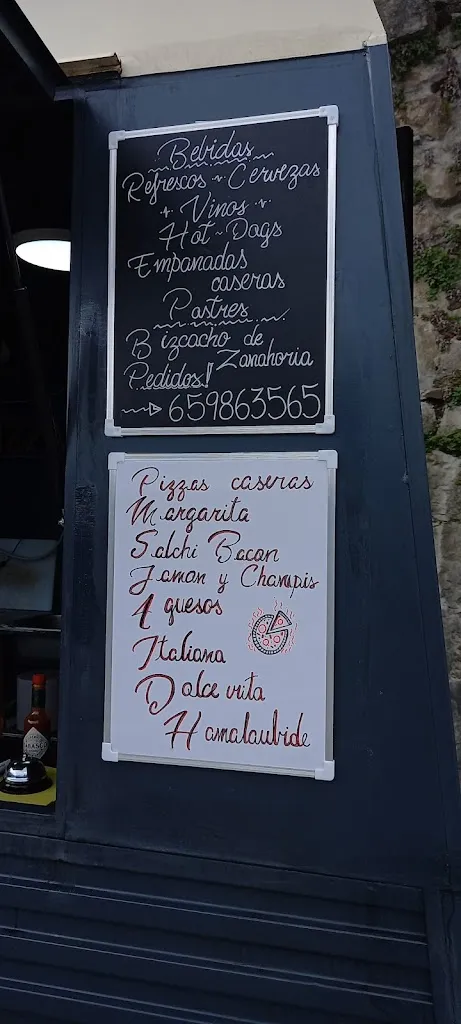 Bebidas
Refrescos - Cervezas
Vinos
Hot-Dogs
Empanadas
caseras
Pastres
Bizcacho de
Zanahoria
Pedidos!
659863565
Pizzas caseras
Margarita
Salchi Bacon
Jamon y Champis
4 quesos
Italiana
Dolce vita
Hamalaubide